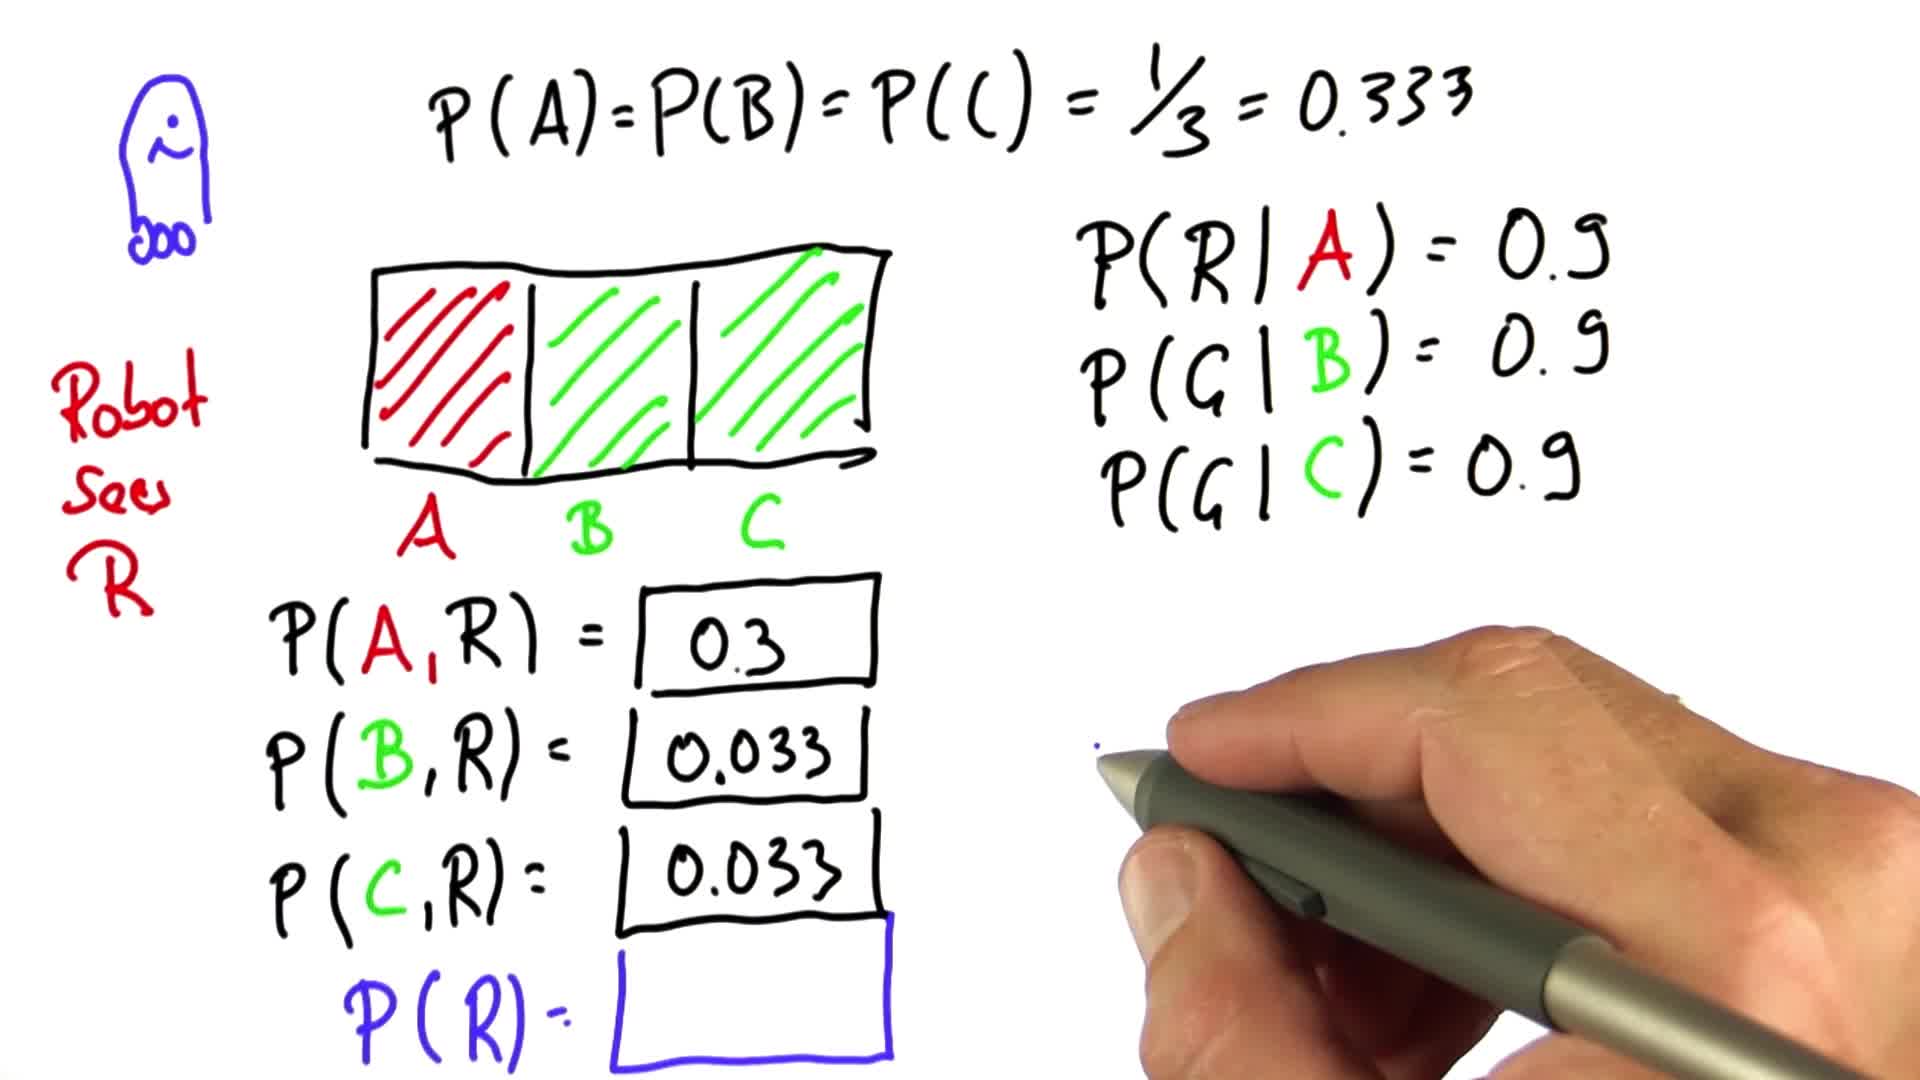 P(A)=P(B)=P(C) = 1/3 = 0.333
P(R|A) = 0.9
P(G|B) = 0.9
P(G|C) = 0.9
Robot
Sees
R
A B C
P(A,R) = 0.3
P(B,R) = 0.033
P(C,R) = 0.033
P(R) =